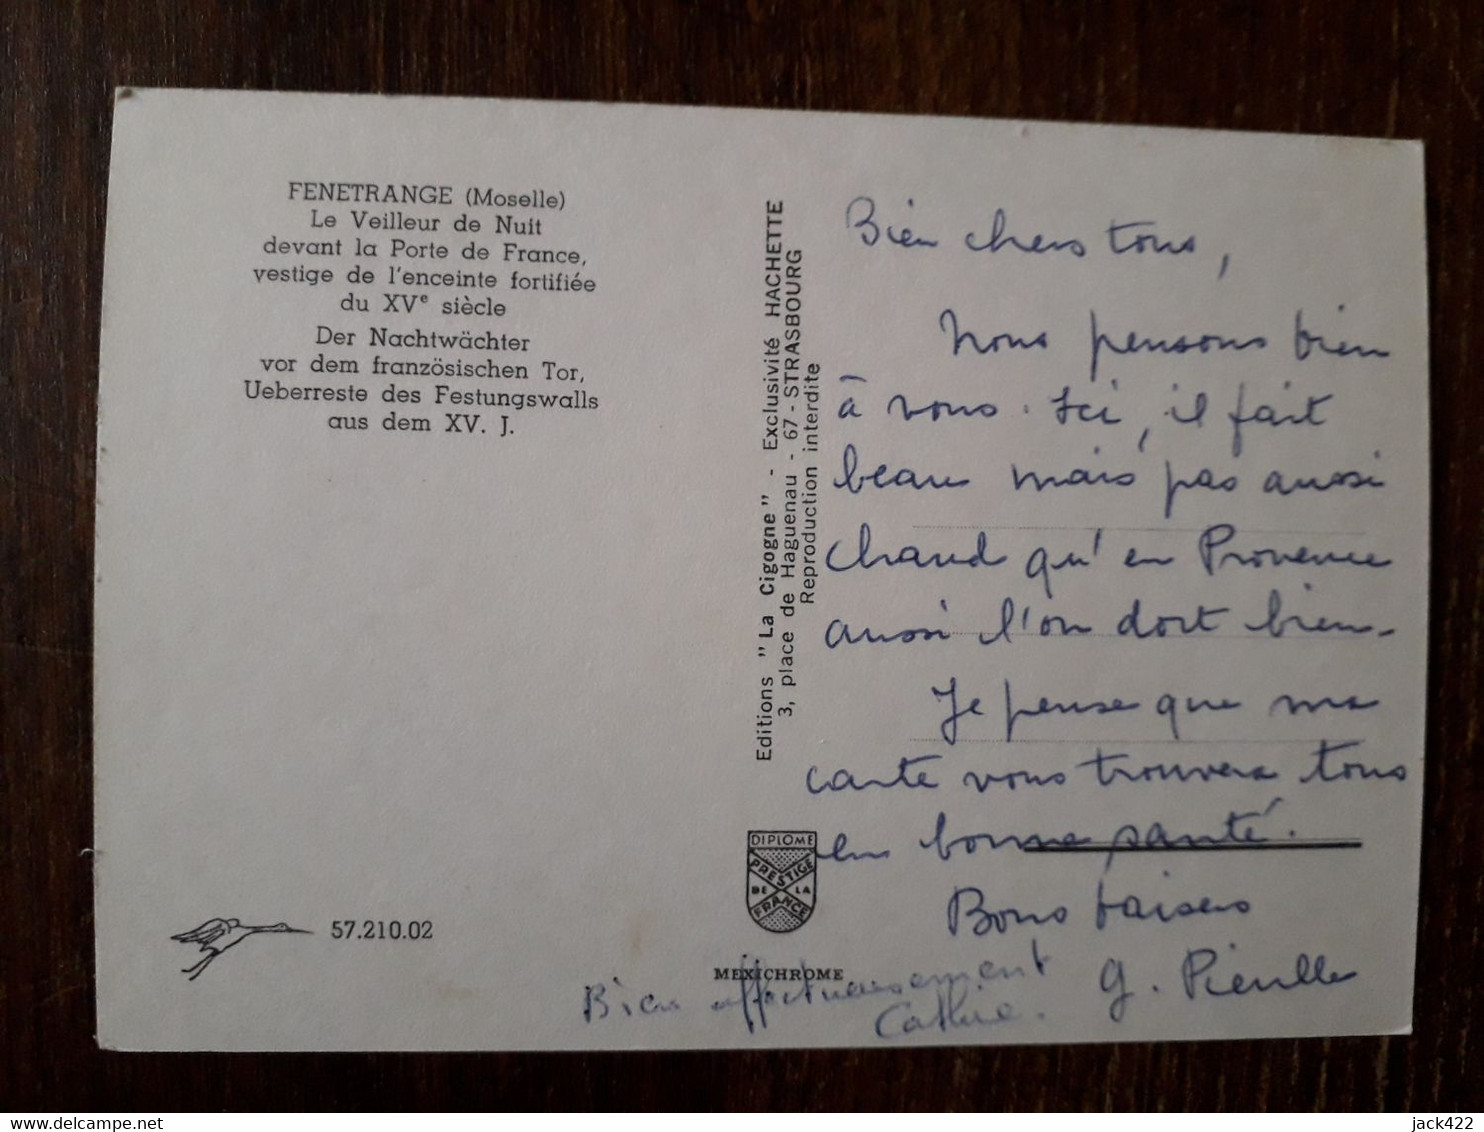 FENETRANGE (Moselle)
Le Veilleur de Nuit
devant la Porte de France,
vestige de l'enceinte fortifiée
du XVe siècle
Der Nachtwächter
vor dem französischen Tor,
Ueberreste des Festungswalls
aus dem XV. J.
57.210.02
Editions "La Cigogne" - Exclusivité HACHETTE
3, place de Haguenau - 67 - STRASBOURG
Reproduction interdite
DIPLOME
PRESTIGE
DE LA
FRANCE
MEXICHROME
Bien chers tous,
Nous pensons bien
à vous. Ici, il fait
beau mais pas aussi
chaud qu'en Provence
aussi l'on dort bien.
Je pense que ma
carte vous trouvera tous
en bonne santé.
Bons baisers
G.
Bien affectueusement
Cathie.
delcampe.net
jack422